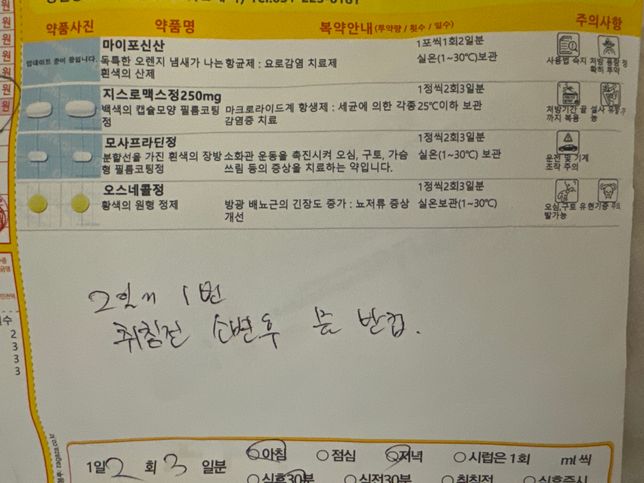 약품사진 약품명 복약안내(투약량 / 횟수 / 일수) 주의사항
업데이트 준비 중입니다.
마이포신산 1포씩1회2일분
독특한 오렌지 냄새가 나는 항균제 : 요로감염 치료제 실온(1~30℃)보관
흰색의 산제
사용법 숙지
지스로맥스정250mg 1정씩2회3일분
백색의 캡슐모양 필름코팅 마크로라이드계 항생제 : 세균에 의한 각종 25℃이하 보관
정 감염증 치료
처방기간 끝 설사 유발가
까지 복용 능
모사프라딘정 1정씩2회3일분
분할선을 가진 흰색의 장방 소화관 운동을 촉진시켜 오심, 구토, 가슴 실온(1~30℃)보관
형 필름코팅정 쓰림 등의 증상을 치료하는 약입니다.
운전 및 기계
조작 주의
오스네콜정 1정씩2회3일분
황색의 원형 정제 방광 배뇨근의 긴장도 증가 : 뇨저류 증상 실온보관(1~30℃)
개선
오심,구토 유 현기증 주의
발가능
2일에 1번
취침전 소변후 물 반컵.
1일 2 회 3 일분 아침 점심 저녁 시럽은 1회 ml 씩
식후30분 식전30분 취침전 식후즉시
원
원
원
원
원
2
3
3
3